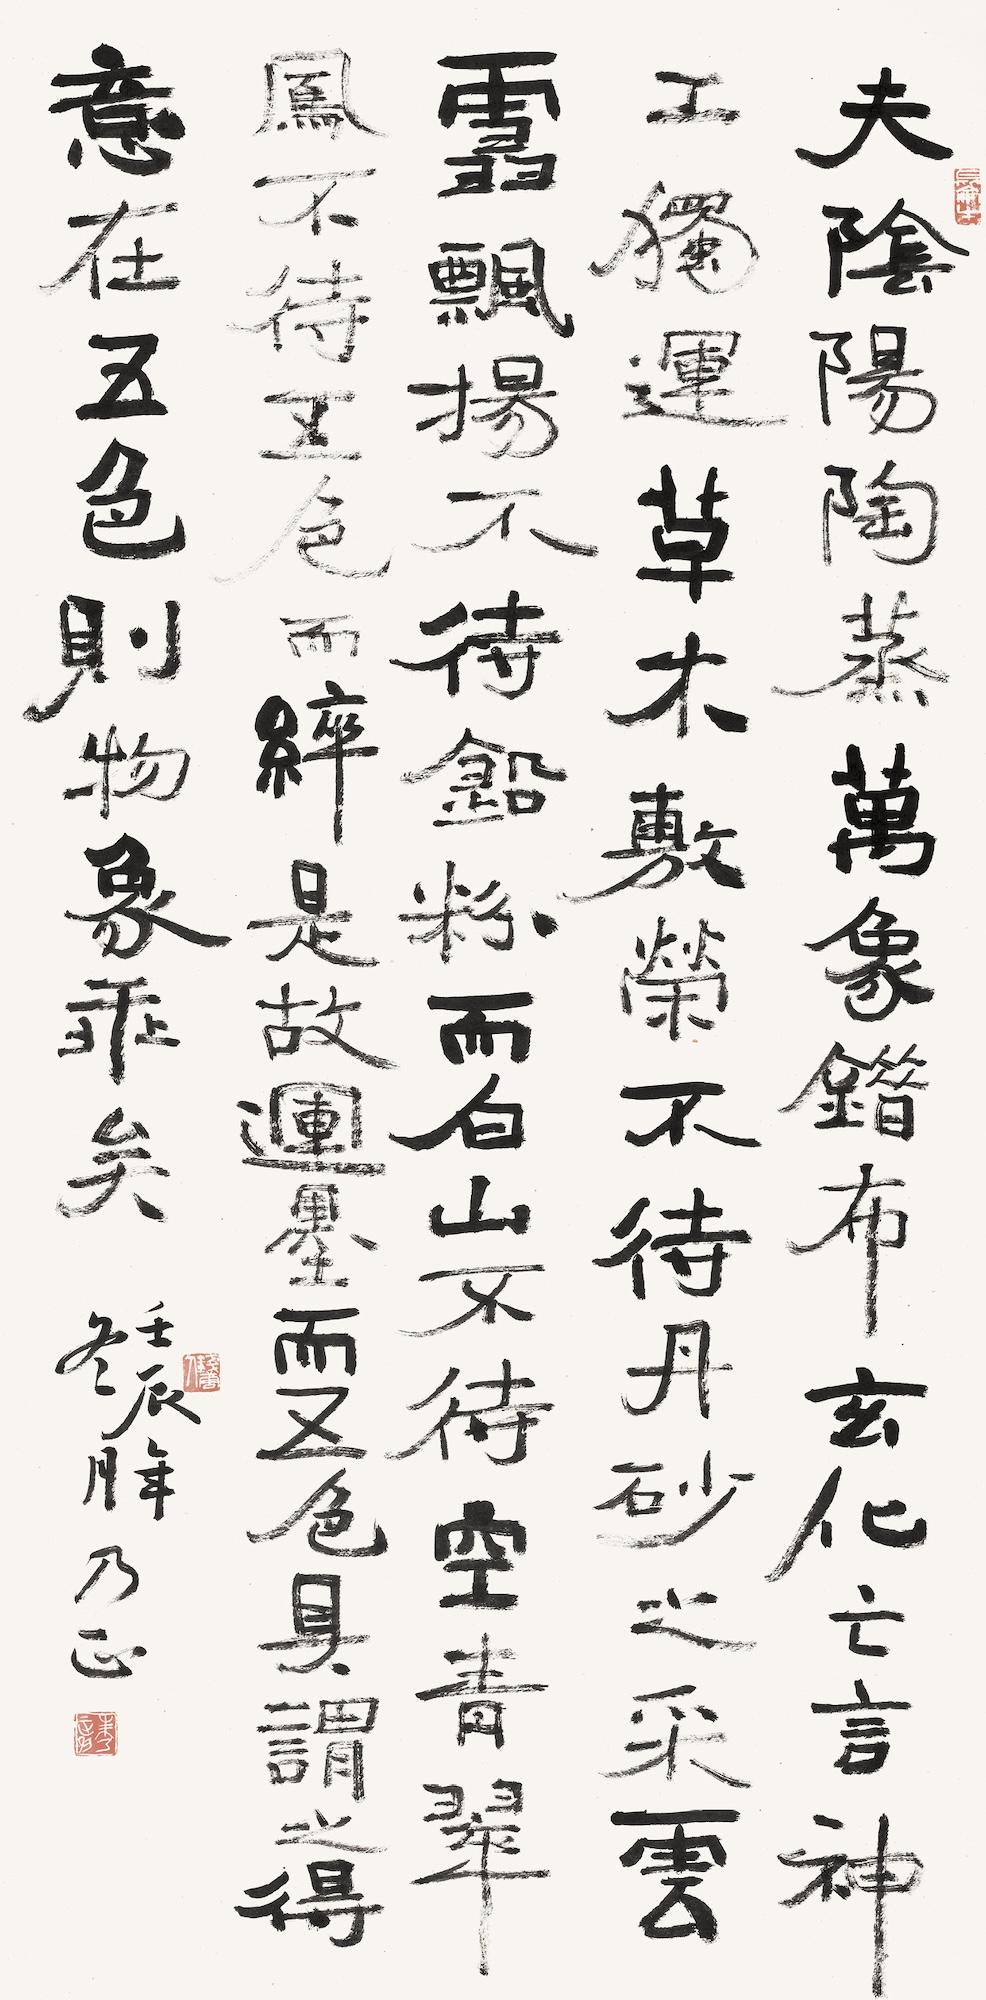 夫陰陽陶蒸萬象錯布玄化亡言神
工獨運草木敷榮不待丹砂之采雲
雪飄揚不待鉛粉而白山不待空青翠
鳳不待五色而綷是故運墨而五色具謂之得
意在五色則物象乖矣
壬辰年
冬月
乃正